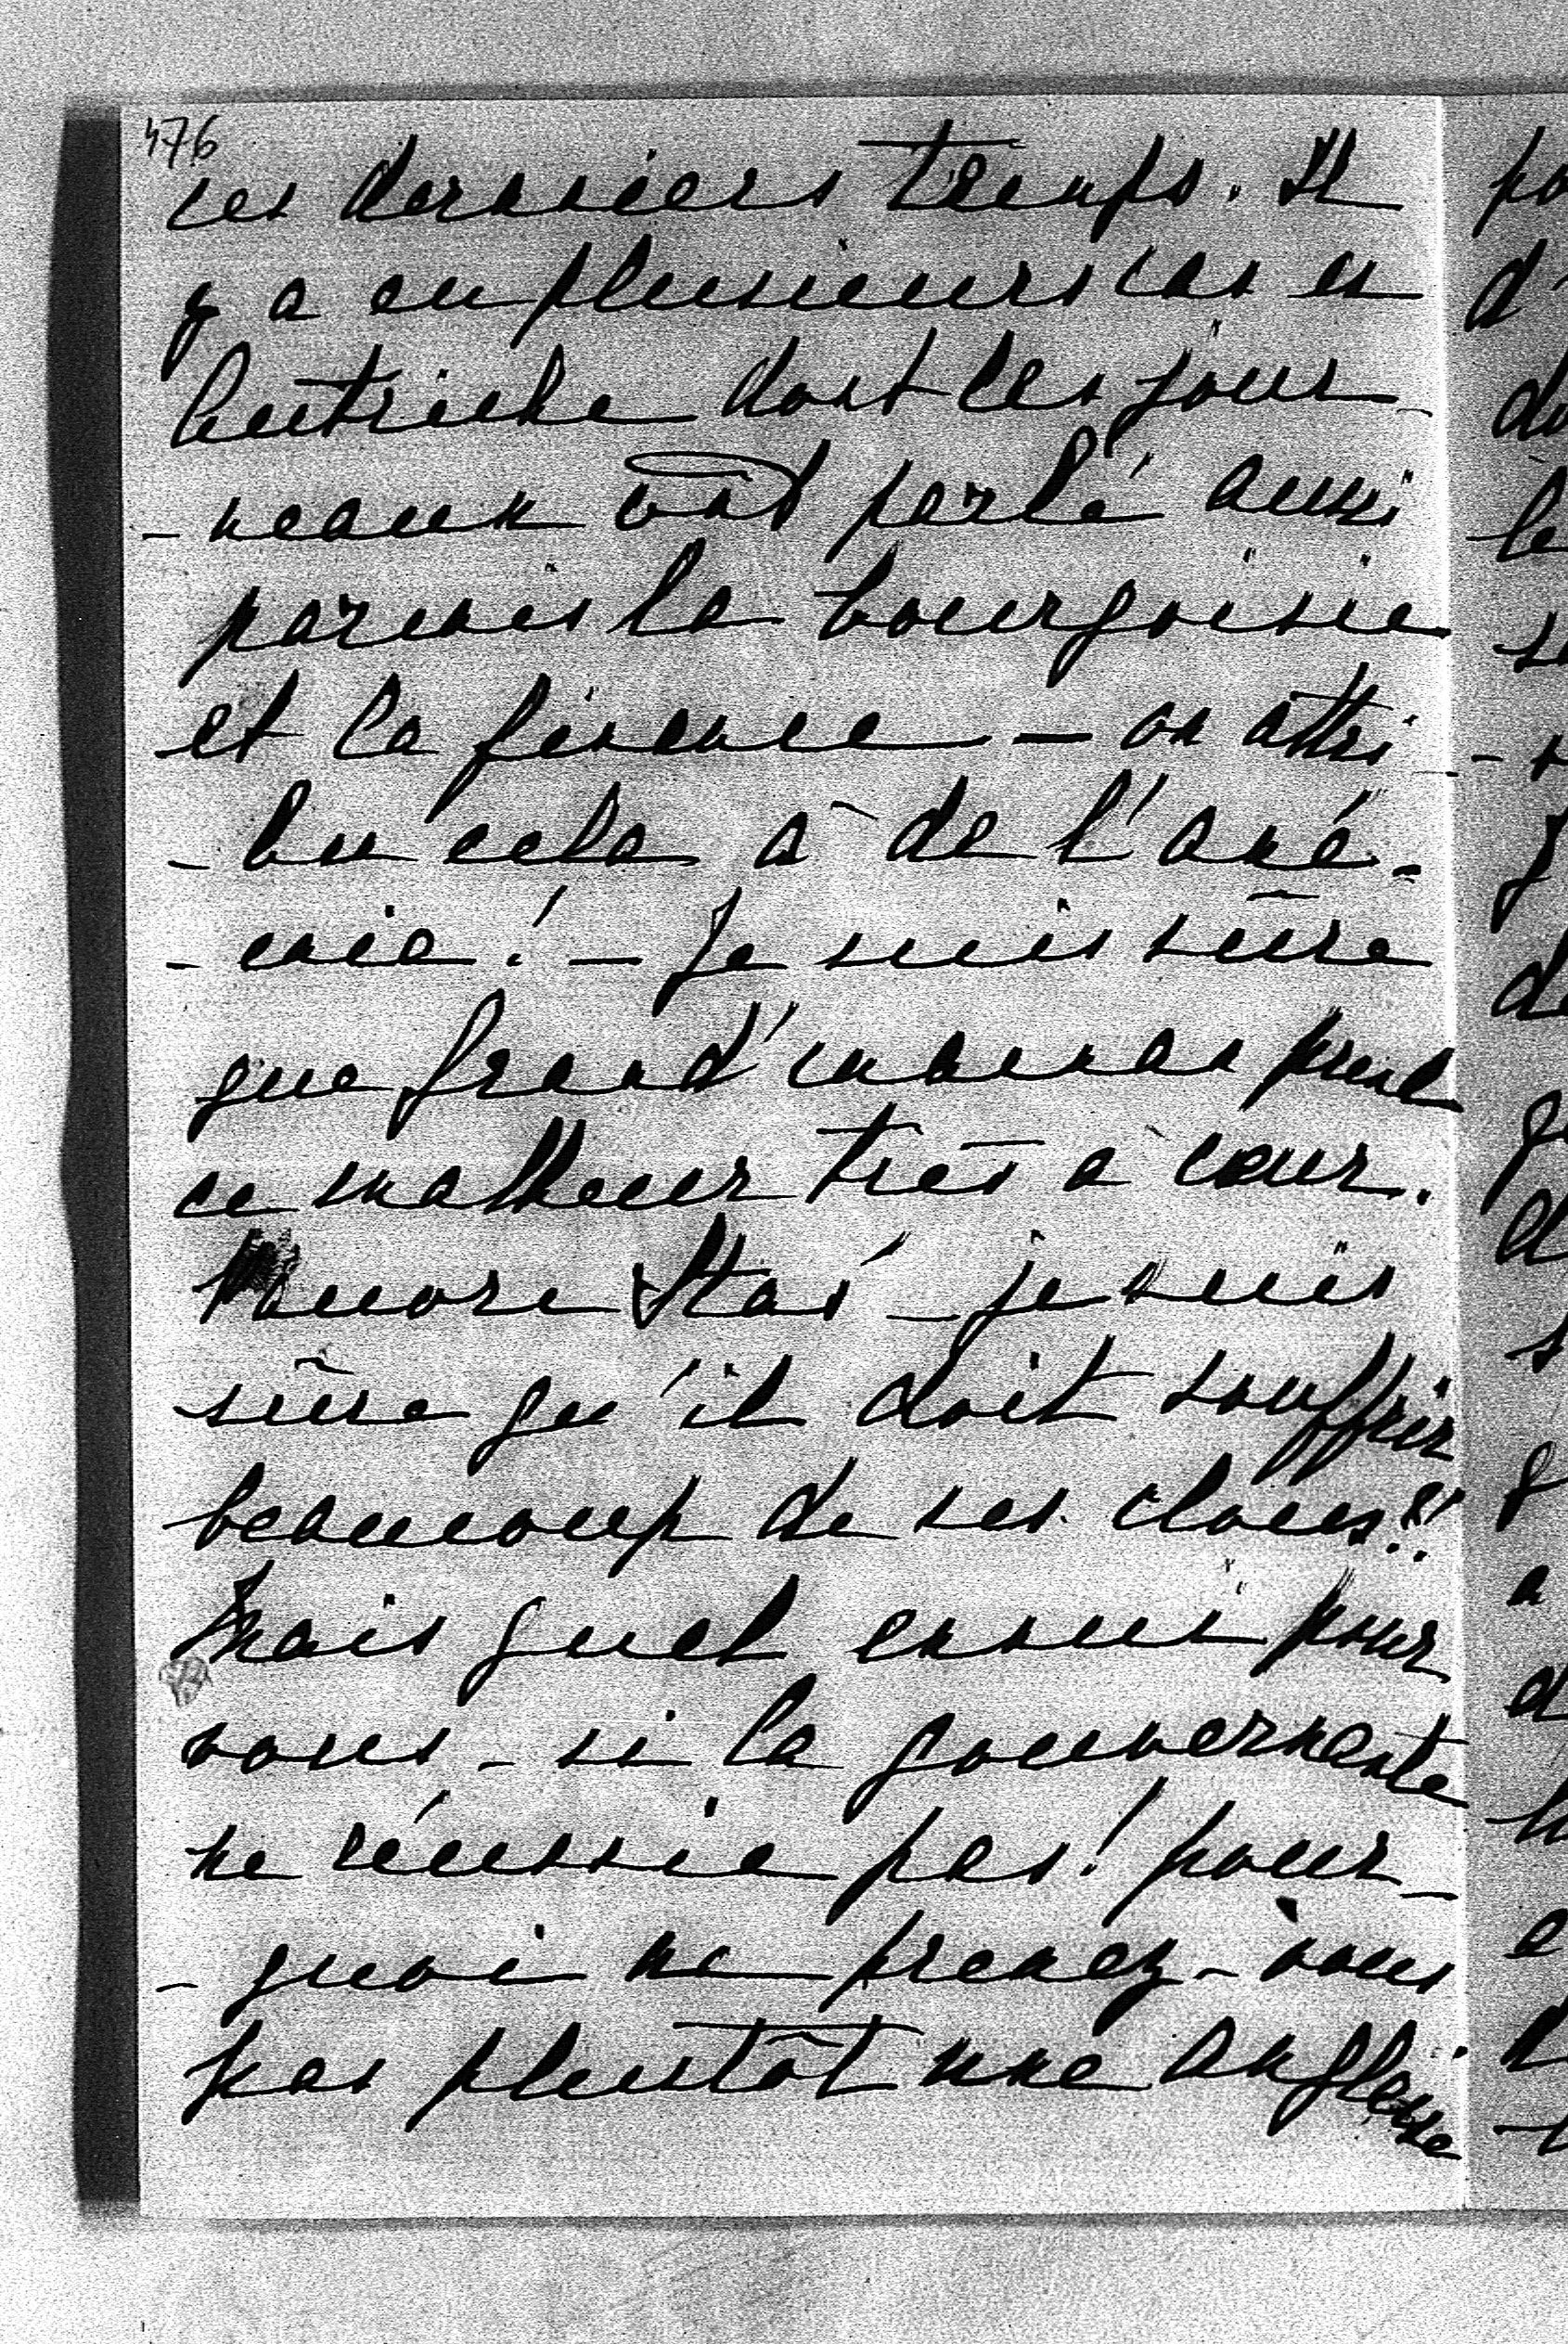 476
ces derniers temps. Il
y a eu plusieurs cas en
Autriche dont les jour-
-neaux ont parlé aussi
parmis la bourgoisie
et la finance – on attri-
-bu cela à de l'ané-
-mie! – Je suis sûre
que Grand'maman prend
ce malheur très à cœur.
Pauvre Stas – je suis
sûre qu'il doit souffrir
beaucoup de ses clous!!
Mais quel ennui pour
vous – si la gouvernante
ne réussie pas! pour-
-quoi ne prenez-vous
pas plustôt une Anglaise